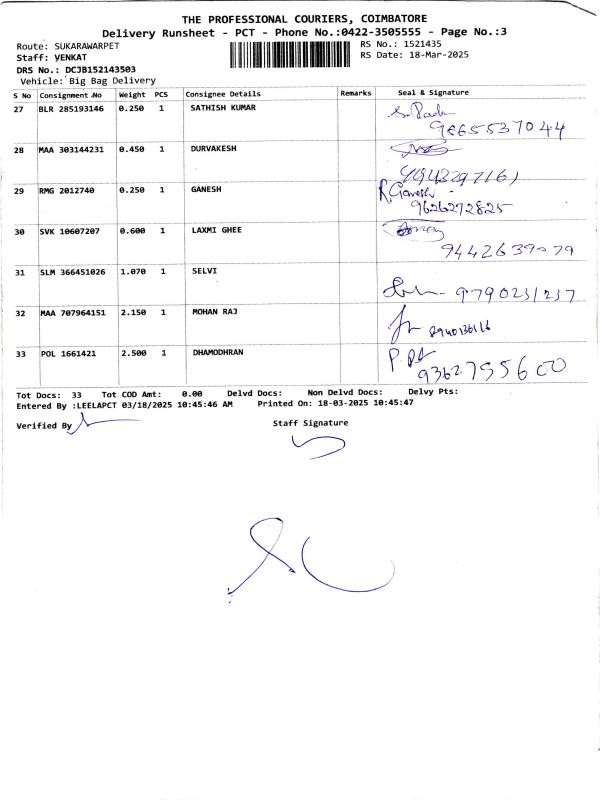 THE PROFESSIONAL COURIERS, COIMBATORE
Delivery Runsheet - PCT - Phone No.:0422-3505555 - Page No.:3
Route: SUKARAWARPET RS No.: 1521435
Staff: VENKAT RS Date: 18-Mar-2025
DRS No.: DCJB152143503
Vehicle: Big Bag Delivery
S No Consignment No Weight PCS Consignee Details Remarks Seal & Signature
27 BLR 285193146 0.250 1 SATHISH KUMAR
9665537044
28 MAA 303144231 0.450 1 DURVAKESH
29 RMG 2012740 0.250 1 GANESH R. Ganesh
9626292825
30 SVK 10607207 0.600 1 LAXMI GHEE
9442639079
31 SLM 366451026 1.070 1 SELVI
9790231237
32 MAA 707964151 2.150 1 MOHAN RAJ
33 POL 1661421 2.500 1 DHAMODHRAN
9362755600
Tot Docs: 33 Tot COD Amt: 0.00 Delvd Docs: Non Delvd Docs: Delvy Pts:
Entered By :LEELAPCT 03/18/2025 10:45:46 AM Printed On: 18-03-2025 10:45:47
Verified By Staff Signature